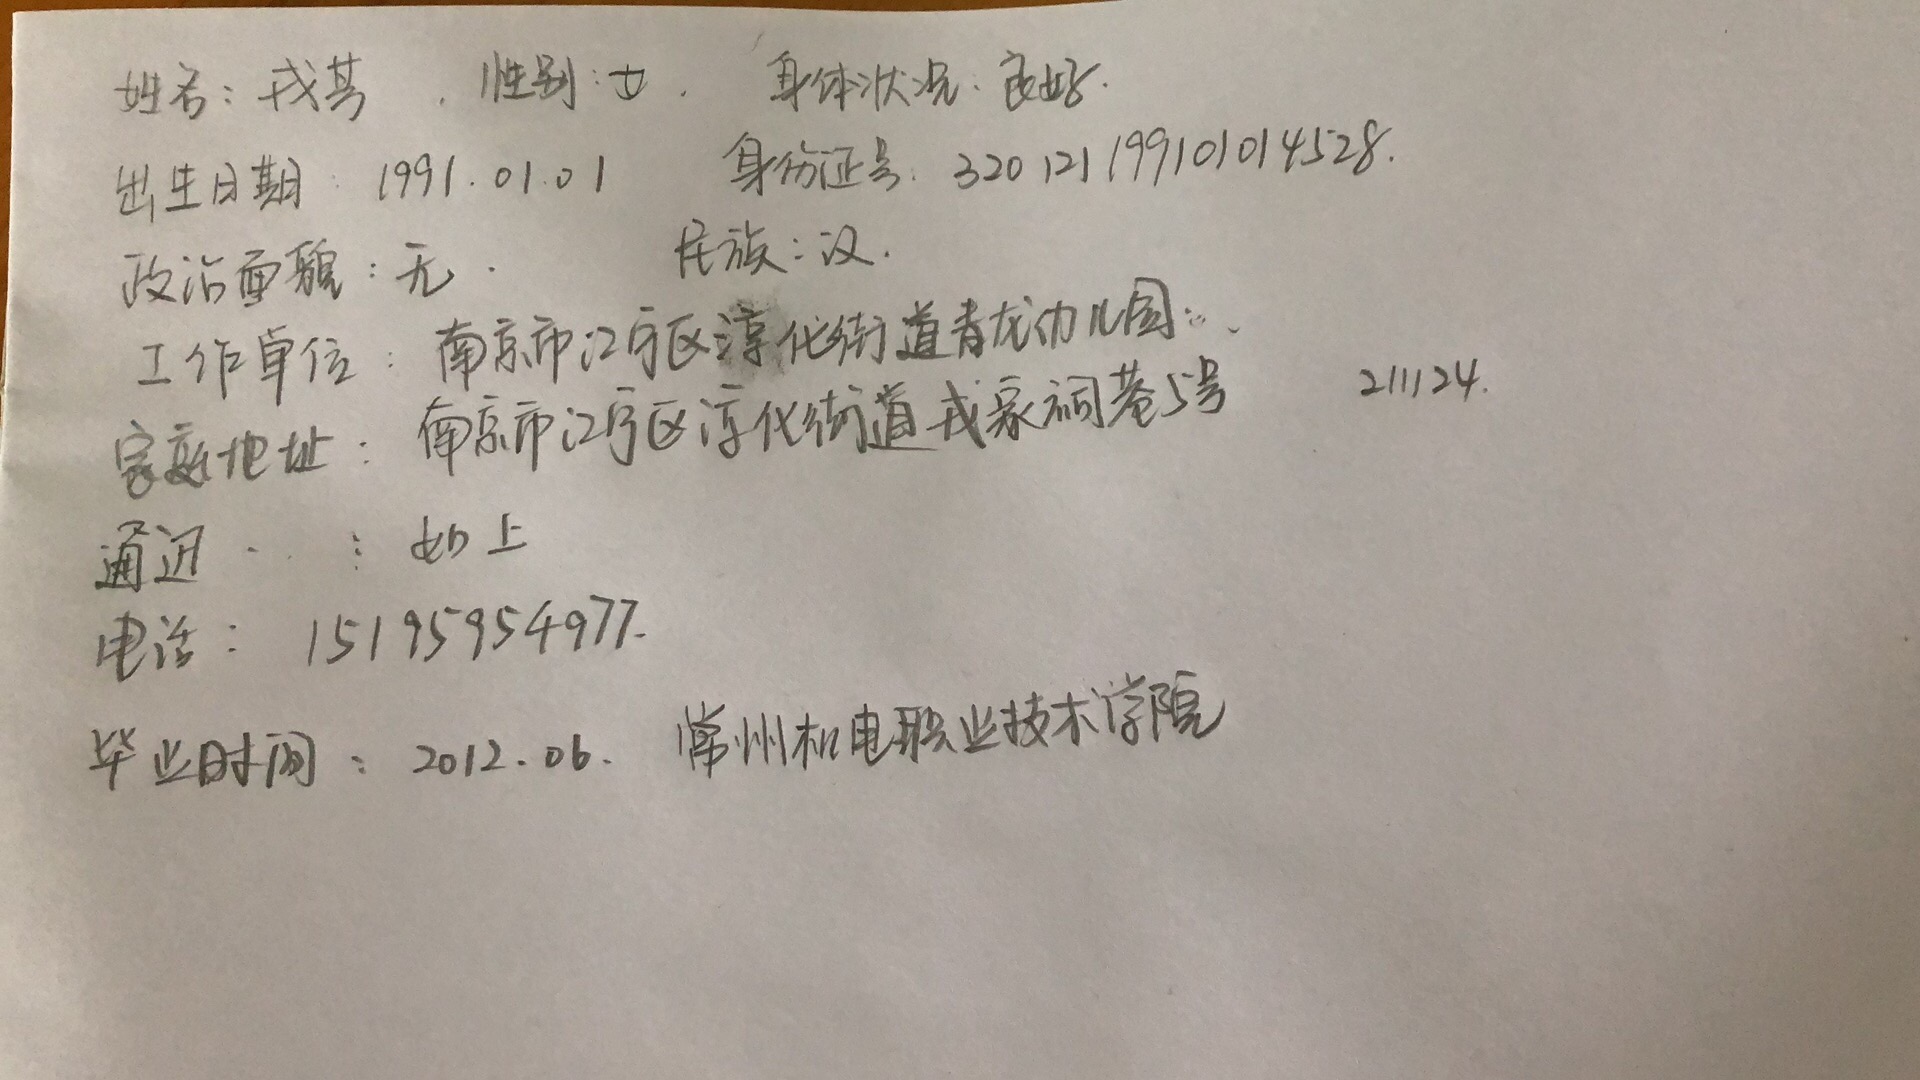 姓名：戎某 . 性别：女 . 身体状况：良好.
出生日期：1991.01.01 身份证号：320121199101014528.
政治面貌：无 . 民族：汉.
工作单位：南京市江宁区淳化街道青龙幼儿园.
家庭地址：南京市江宁区淳化街道戎家祠巷5号 211124.
通迅 . . ：如上
电话：15195954977.
毕业时间：2012.06. 常州机电职业技术学院